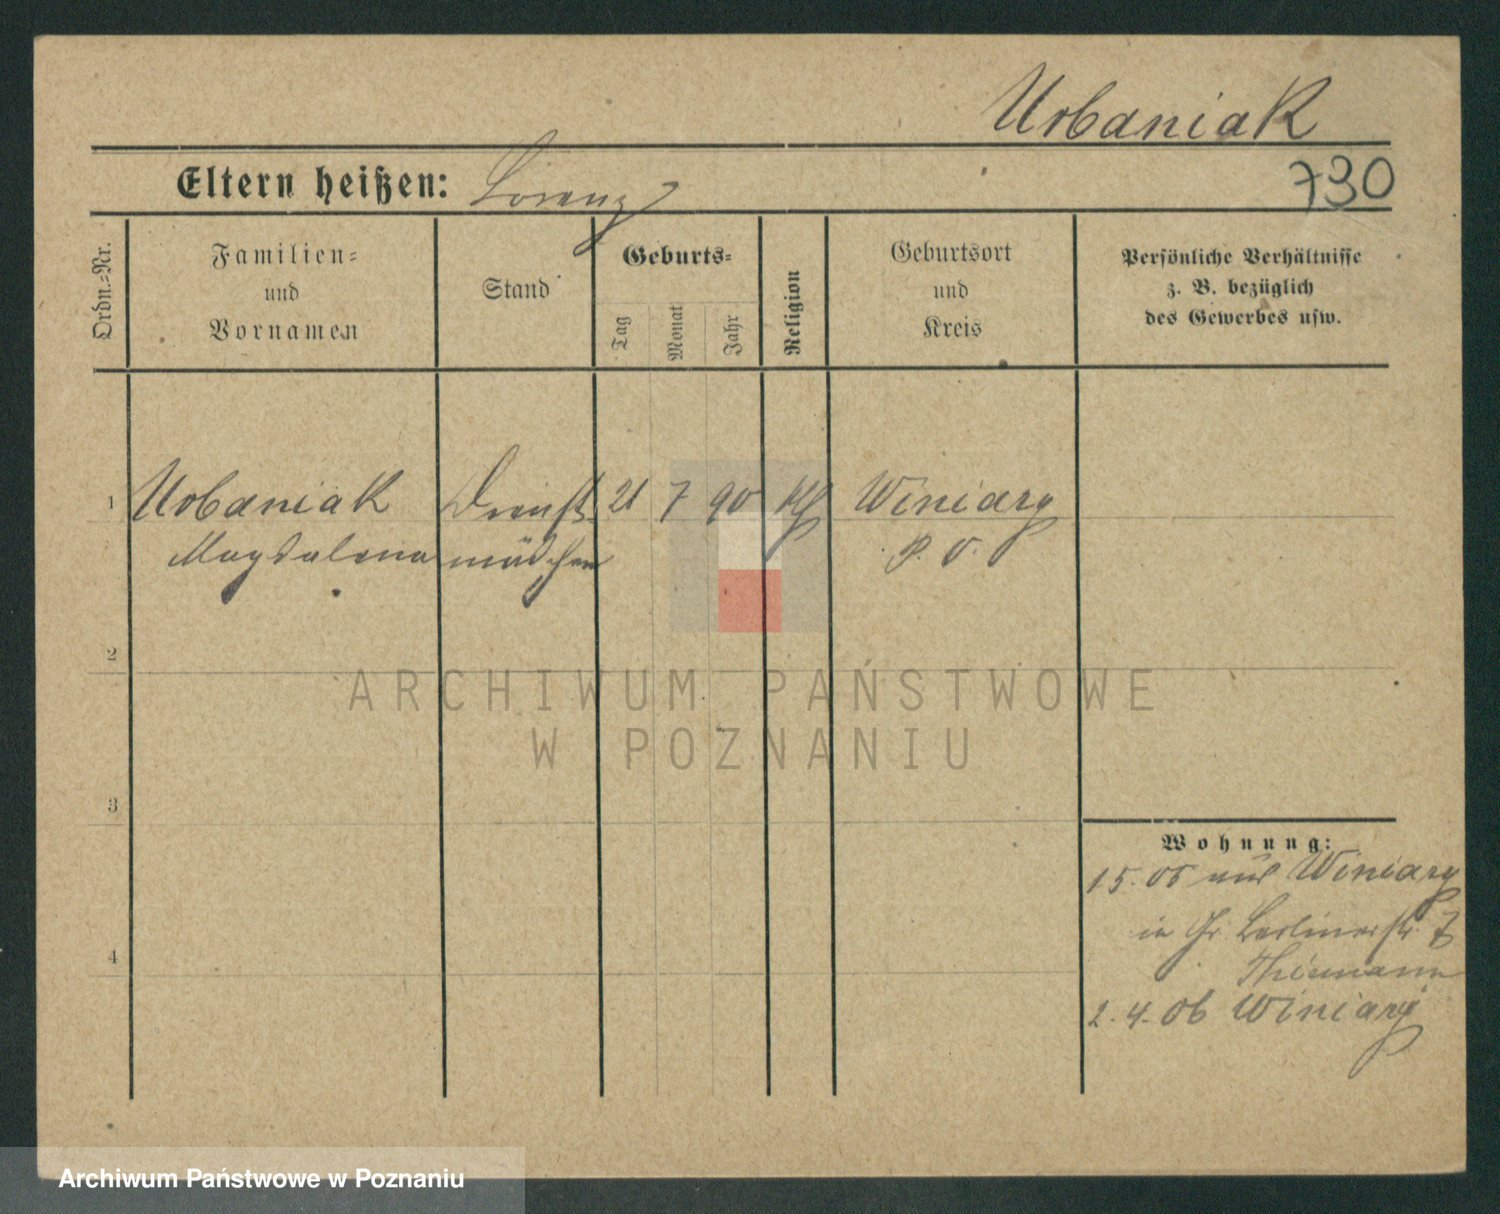 Urbaniak
Eltern heißen: Lorenz
730
Ordn.=Nr.
Familien=
und
Vornamen
Stand
Geburts=
Tag
Monat
Jahr
Religion
Geburtsort
und
Kreis
Persönliche Verhältnisse
z. B. bezüglich
des Gewerbes usw.
1 Urbaniak Dienst 21 7 90 Kh Winiary
Magdalena mädchen P. O.
2
ARCHIWUM PAŃSTWOWE
W POZNANIU
3
Wohnung:
15. 05 aus Winiary
in Gr. Berlinerstr. 7
Thiemann
4
2. 4. 06 Winiary
Archiwum Państwowe w Poznaniu